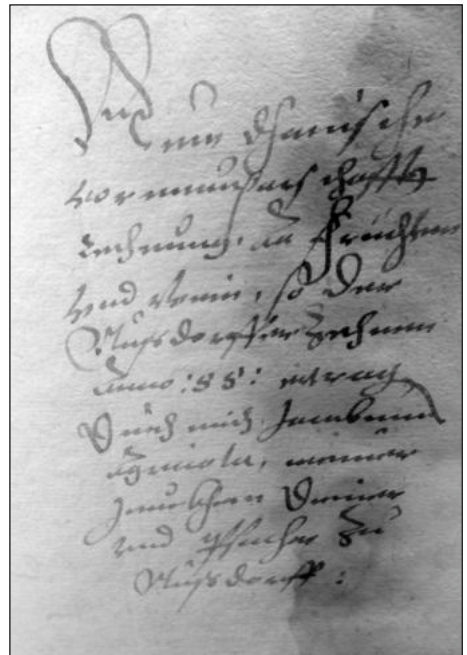 Rein dhaunische
vormundtschafftts
Rechnung, an früchten
vnd wein, so der
Nussdorffer Zehnen
Anno :88: ertrag
Durch mich Jacobum
Agricola, meiner
Junckhern Deiner
vnd pfarher zu
Nussdorff :